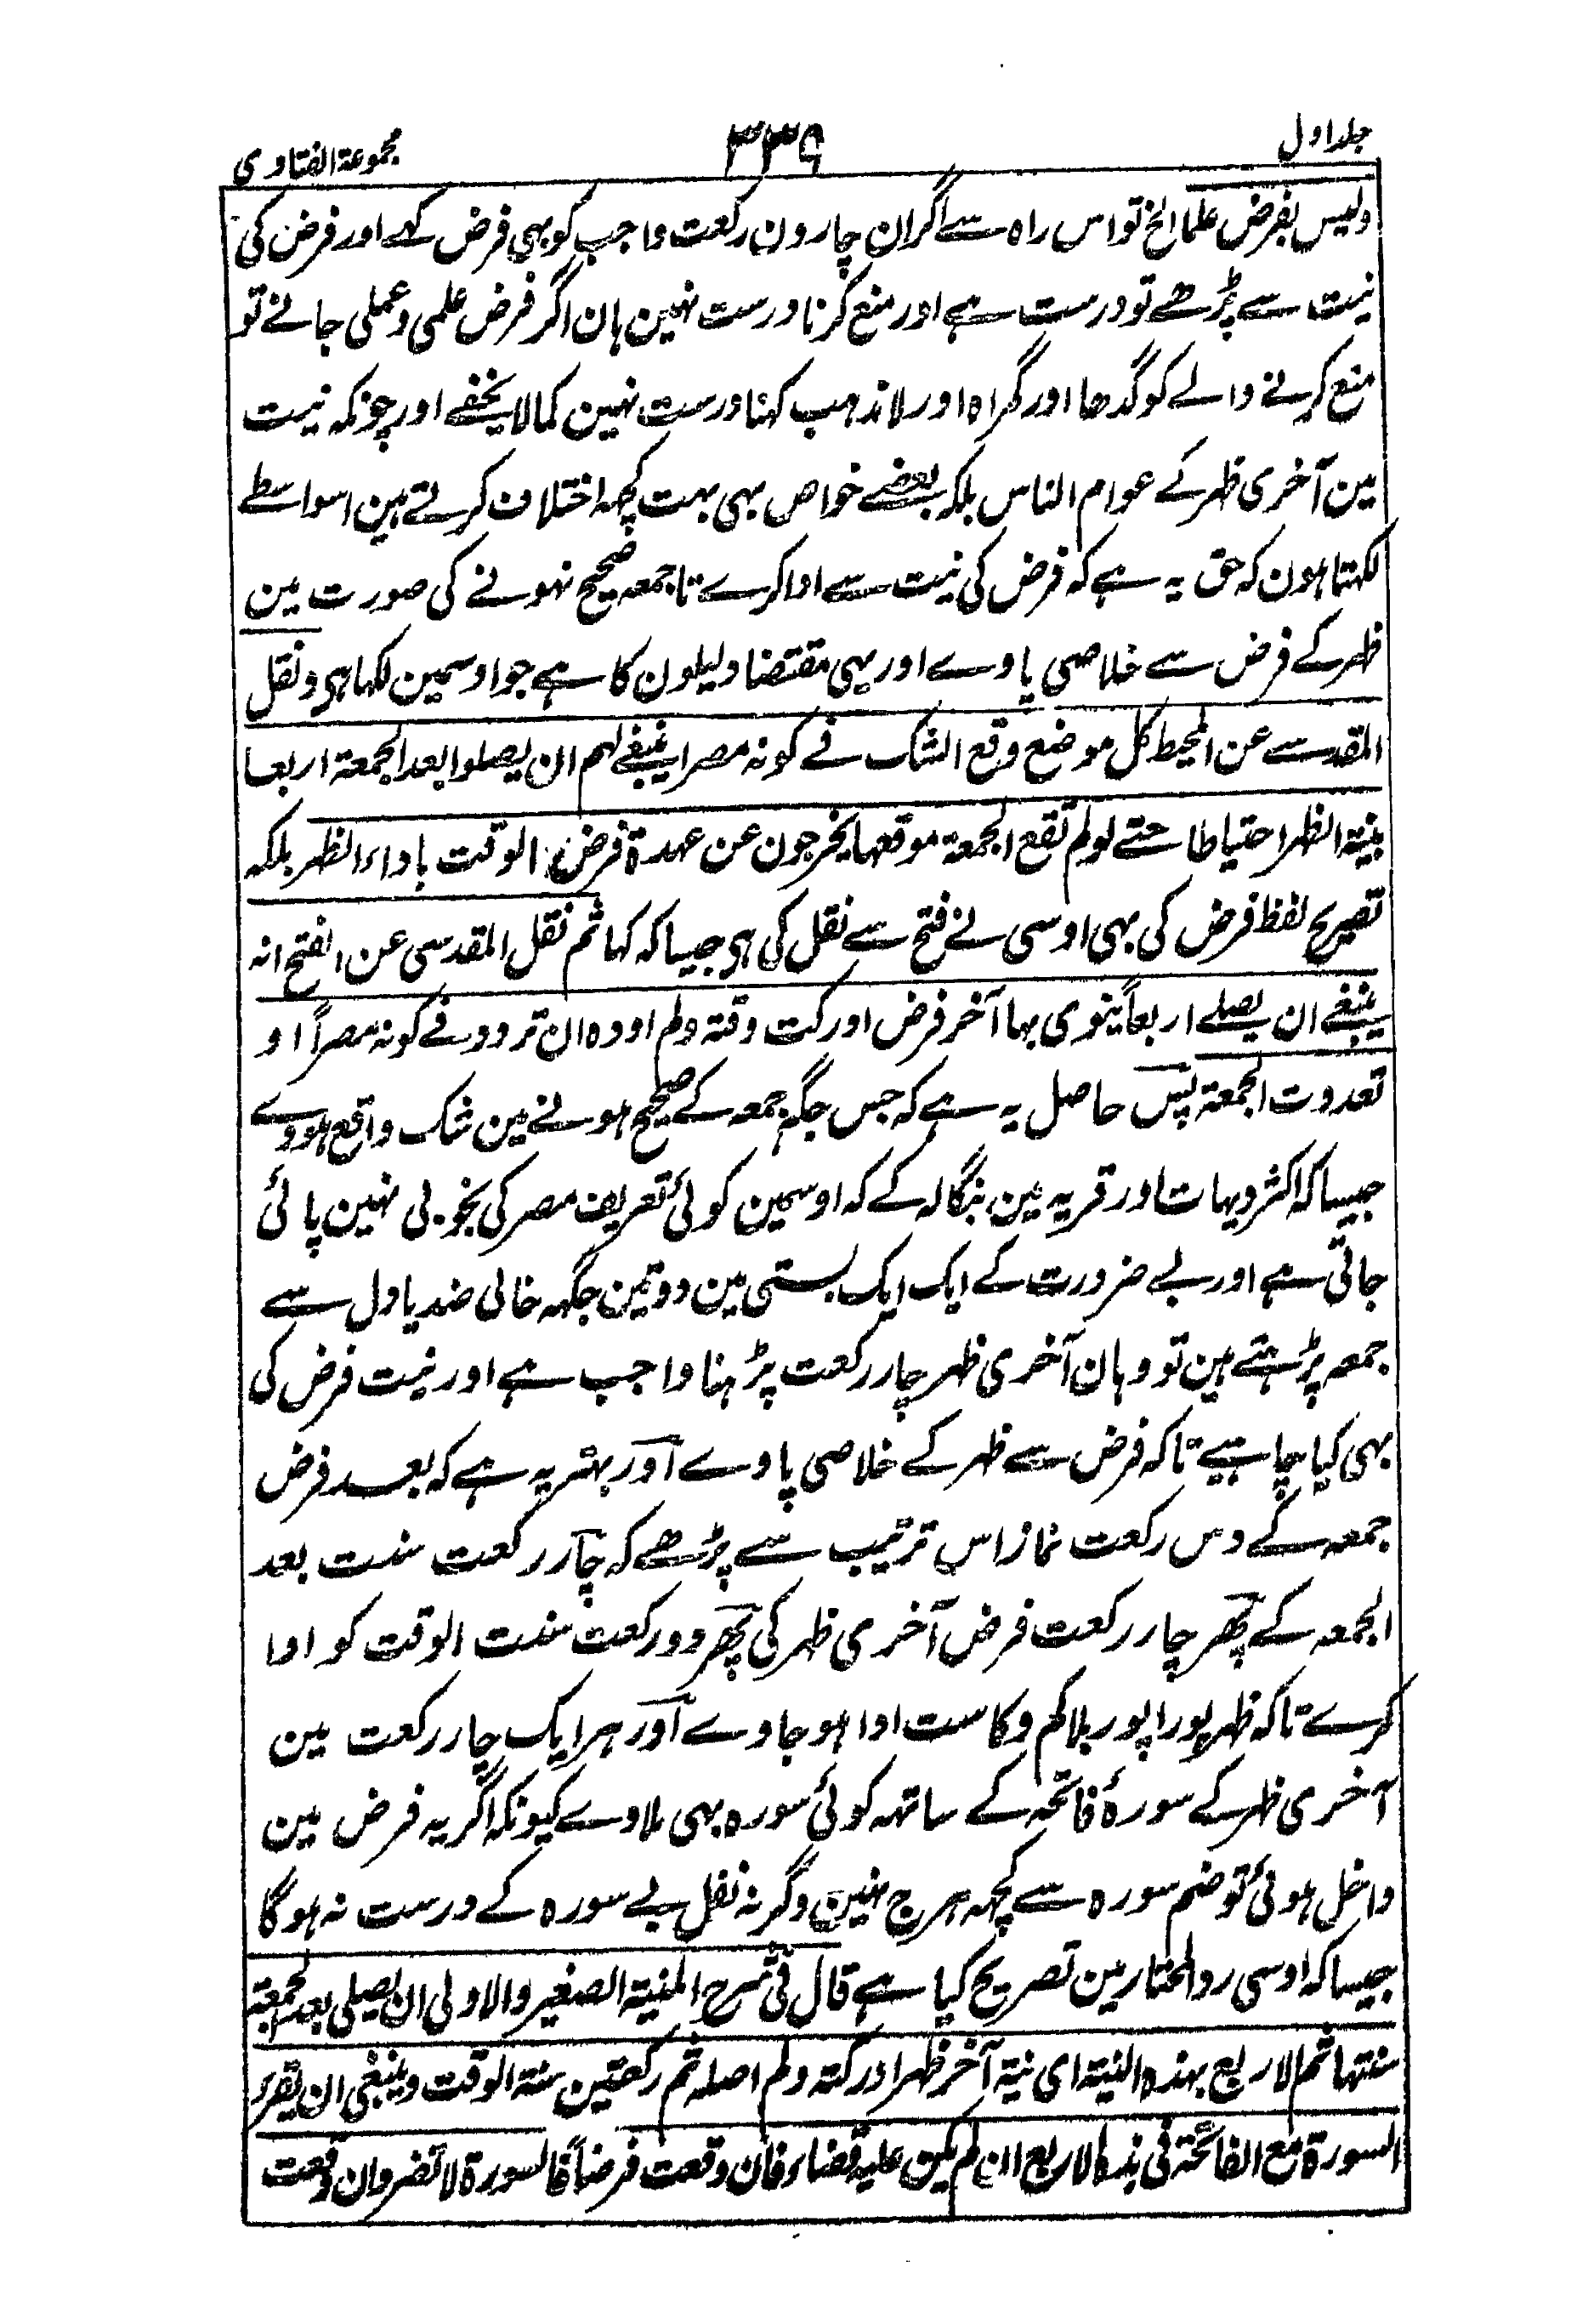 جلد اول
۳۳۹
مجموعۃ الفتاوی
ولیس بفرض علما الخ تو اس راہ سے اگر ان چارون رکعت واجب کو بھی فرض کہے اور فرض کی
نیت سے پڑھے تو درست ہے اور منع کرنا درست نہین ہان اگر فرض علمی و عملی جانے تو
منع کرنے والے کو گدھا اور گمراہ اور لا مذہب کہنا درست نہین کما لا یخفے اور چونکہ نیت
مین آخری ظہر کے عوام الناس بلکہ بعضے خواص بھی بہت کچھہ اختلاف کرتے ہین اسواسطے
لکھتا ہون کہ حق یہ ہے کہ فرض کی نیت سے ادا کرے تا جمعہ صحیح نہونے کی صورت مین
ظہر کے فرض سے خلاصی پاوے اور یہی مقتضا دلیلون کا ہے جو اوسمین لکھا ہی ونقل
المقدسے عن المحیط کل موضع وقع الشک فے کونہ مصرا ینبغے لہم ان یصلوا بعد الجمعۃ اربعا
بنیۃ الظہر احتیاطا حتے لو لم تقع الجمعۃ موقعہا یخرجون عن عہدۃ فرض الوقت باداء الظہر بلکہ
تصریح لفظ فرض کی بھی اوسی نے فتح سے نقل کی ہی جیسا کہ کہا ثم نقل المقدسی عن الفتح انہ
ینبغے ان یصلے اربعاً ینوی بہا آخر فرض ادرکت وقتہ ولم اودہ ان تردد فے کونہ مصراً او
تعددت الجمعۃ پس حاصل یہ ہے کہ جس جگہ جمعہ کے صحیح ہونے مین شک واقع ہووے
جیسا کہ اکثر دیہات اور قریہ مین بنگالہ کے کہ اوسمین کوئی تعریف مصر کی بخوبی نہین پائی
جاتی ہے اور بے ضرورت کے ایک ایک بستی مین دو تین جگہہ خالی ضد یا ول سے
جمعہ پڑھتے ہین تو وہان آخری ظہر چار رکعت پڑہنا واجب ہے اور نیت فرض کی
بھی کیا چاہیے تاکہ فرض سے ظہر کے خلاصی پاوے اور بہتر یہ ہے کہ بعد فرض
جمعہ کے دس رکعت نماز اس ترتیب سے پڑھے کہ چار رکعت سنت بعد
الجمعہ کے پھر چار رکعت فرض آخری ظہر کی پھر دو رکعت سنت الوقت کو ادا
کرے تاکہ ظہر پورا پور بلا کم وکاست ادا ہو جاوے اور ہر ایک چار رکعت مین
آخری ظہر کے سورۂ فاتحہ کے ساتھہ کوئی سورہ بھی ملاوے کیونکہ اگر یہ فرض مین
داخل ہوئی تو ضم سورہ سے کچھہ ہرج نہین وگرنہ نفل بے سورہ کے درست نہ ہوگا
جیسا کہ اوسی رد المختار مین تصریح کیا ہے قال فی شرح المنیۃ الصغیر والاولی ان یصلی بعد الجمعۃ
سنتہا ثم الاربع بہذہ النیۃ ای نیۃ آخر ظہر ادرکتہ ولم اصلہ ثم رکعتین سنۃ الوقت وینبغی ان یقرء
السورۃ مع الفاتحۃ فی ہذہ الاربع ان لم یکن علیہ قضاء فان وقعت فرضاً فالسورۃ لا تضر وان وقعت